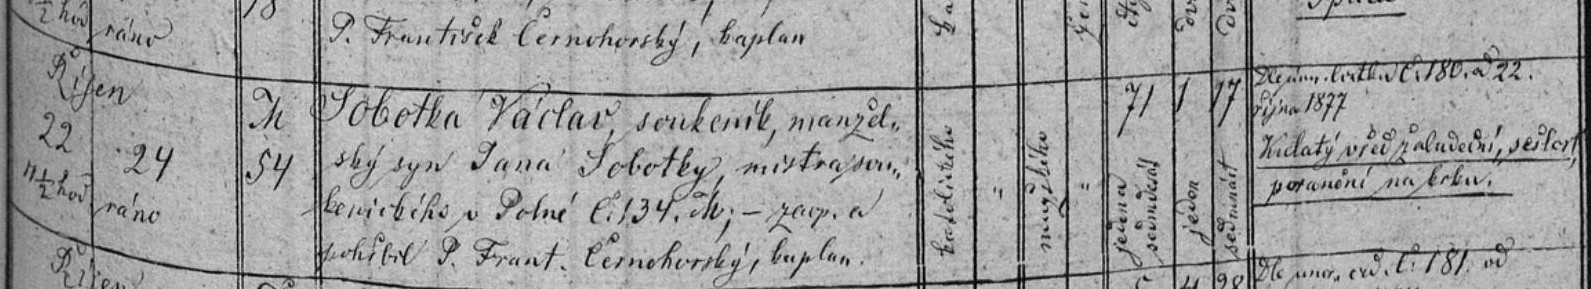 ½ hod ráno
18
P. František Černohorský, kaplan
Říjen
22
11½ hod
24
ráno
M
54
Sobotka Václav, soukeník, manžel„
ský syn Jana Sobotky, mistra sou„
kenického v Polné č. 134. M; – zaop. a
pohřbil P. Frant. Černohorský, kaplan.
katolického
"
mužského
"
71
jeden a
sedmdesát
1
jeden
17
sedmnáct
Dle úmr. lístku č. 180. od 22.
října 1877
Kulatý vřed žaludeční, sešlost,
poranění na krku.
Říjen
4
28
Dle úmr. č. 181. od